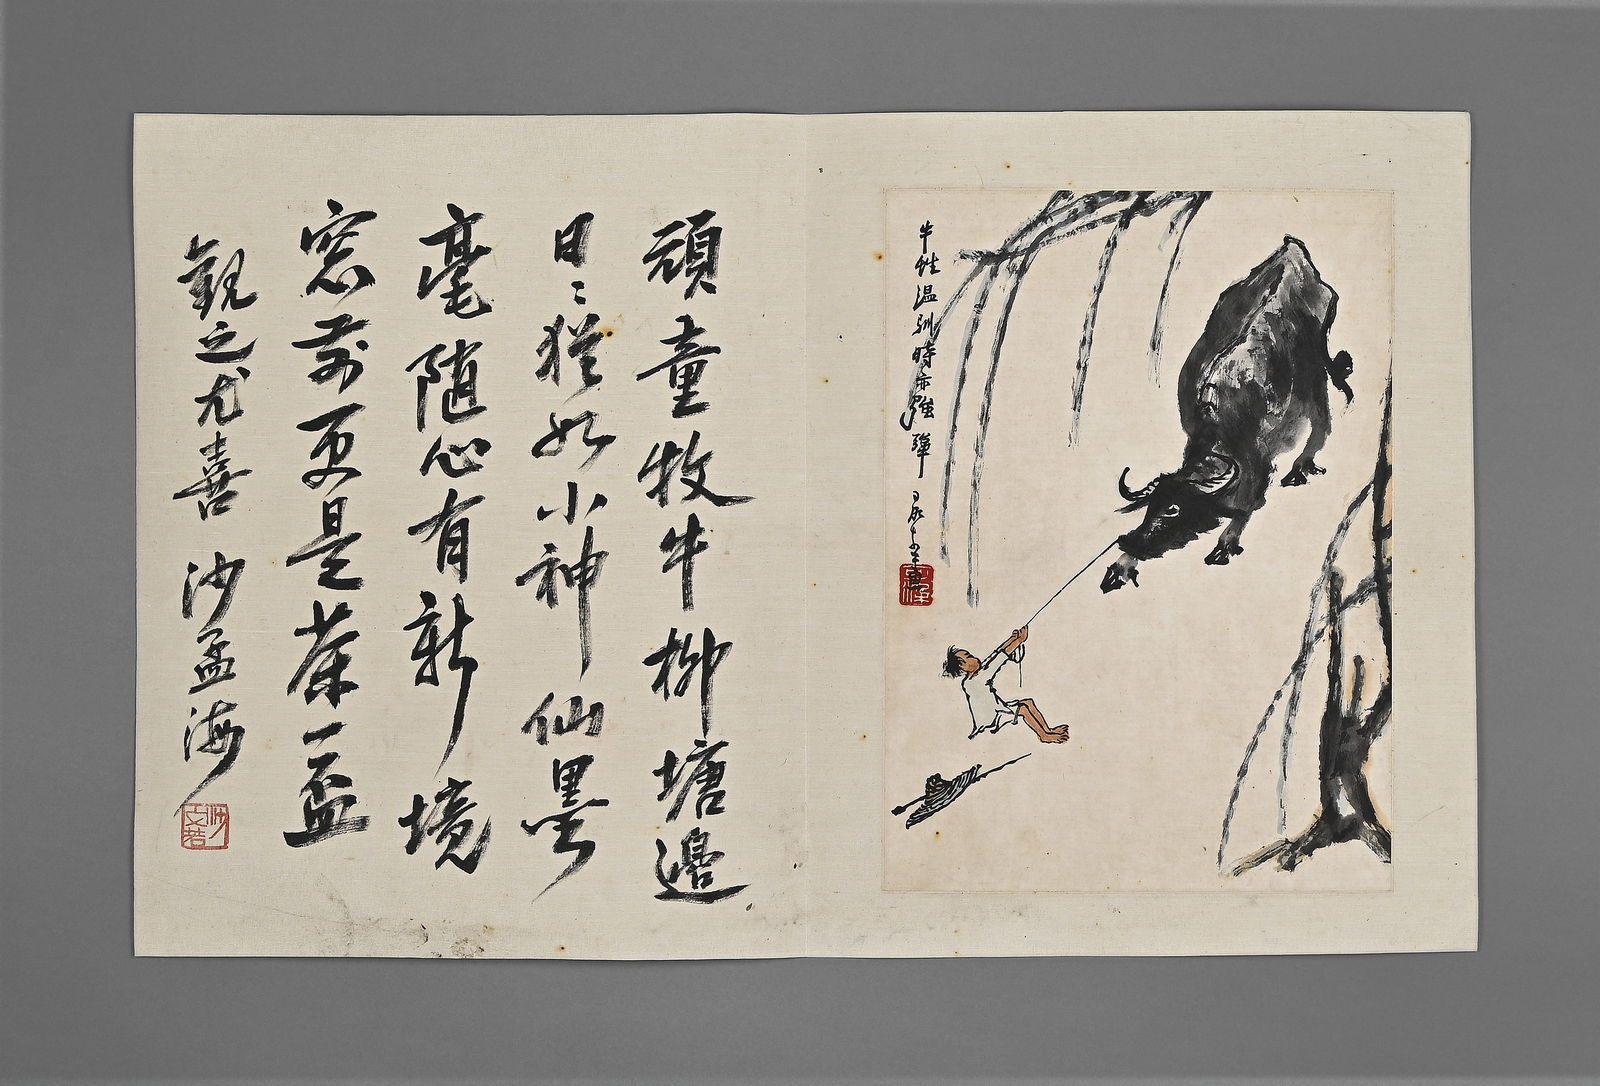 牛性温馴時亦強犟
頑童牧牛柳塘邊
日〻猶如小神仙墨
毫隨心有新境
窓前更是茶一盃
觀之尤喜 沙孟海
沙文若